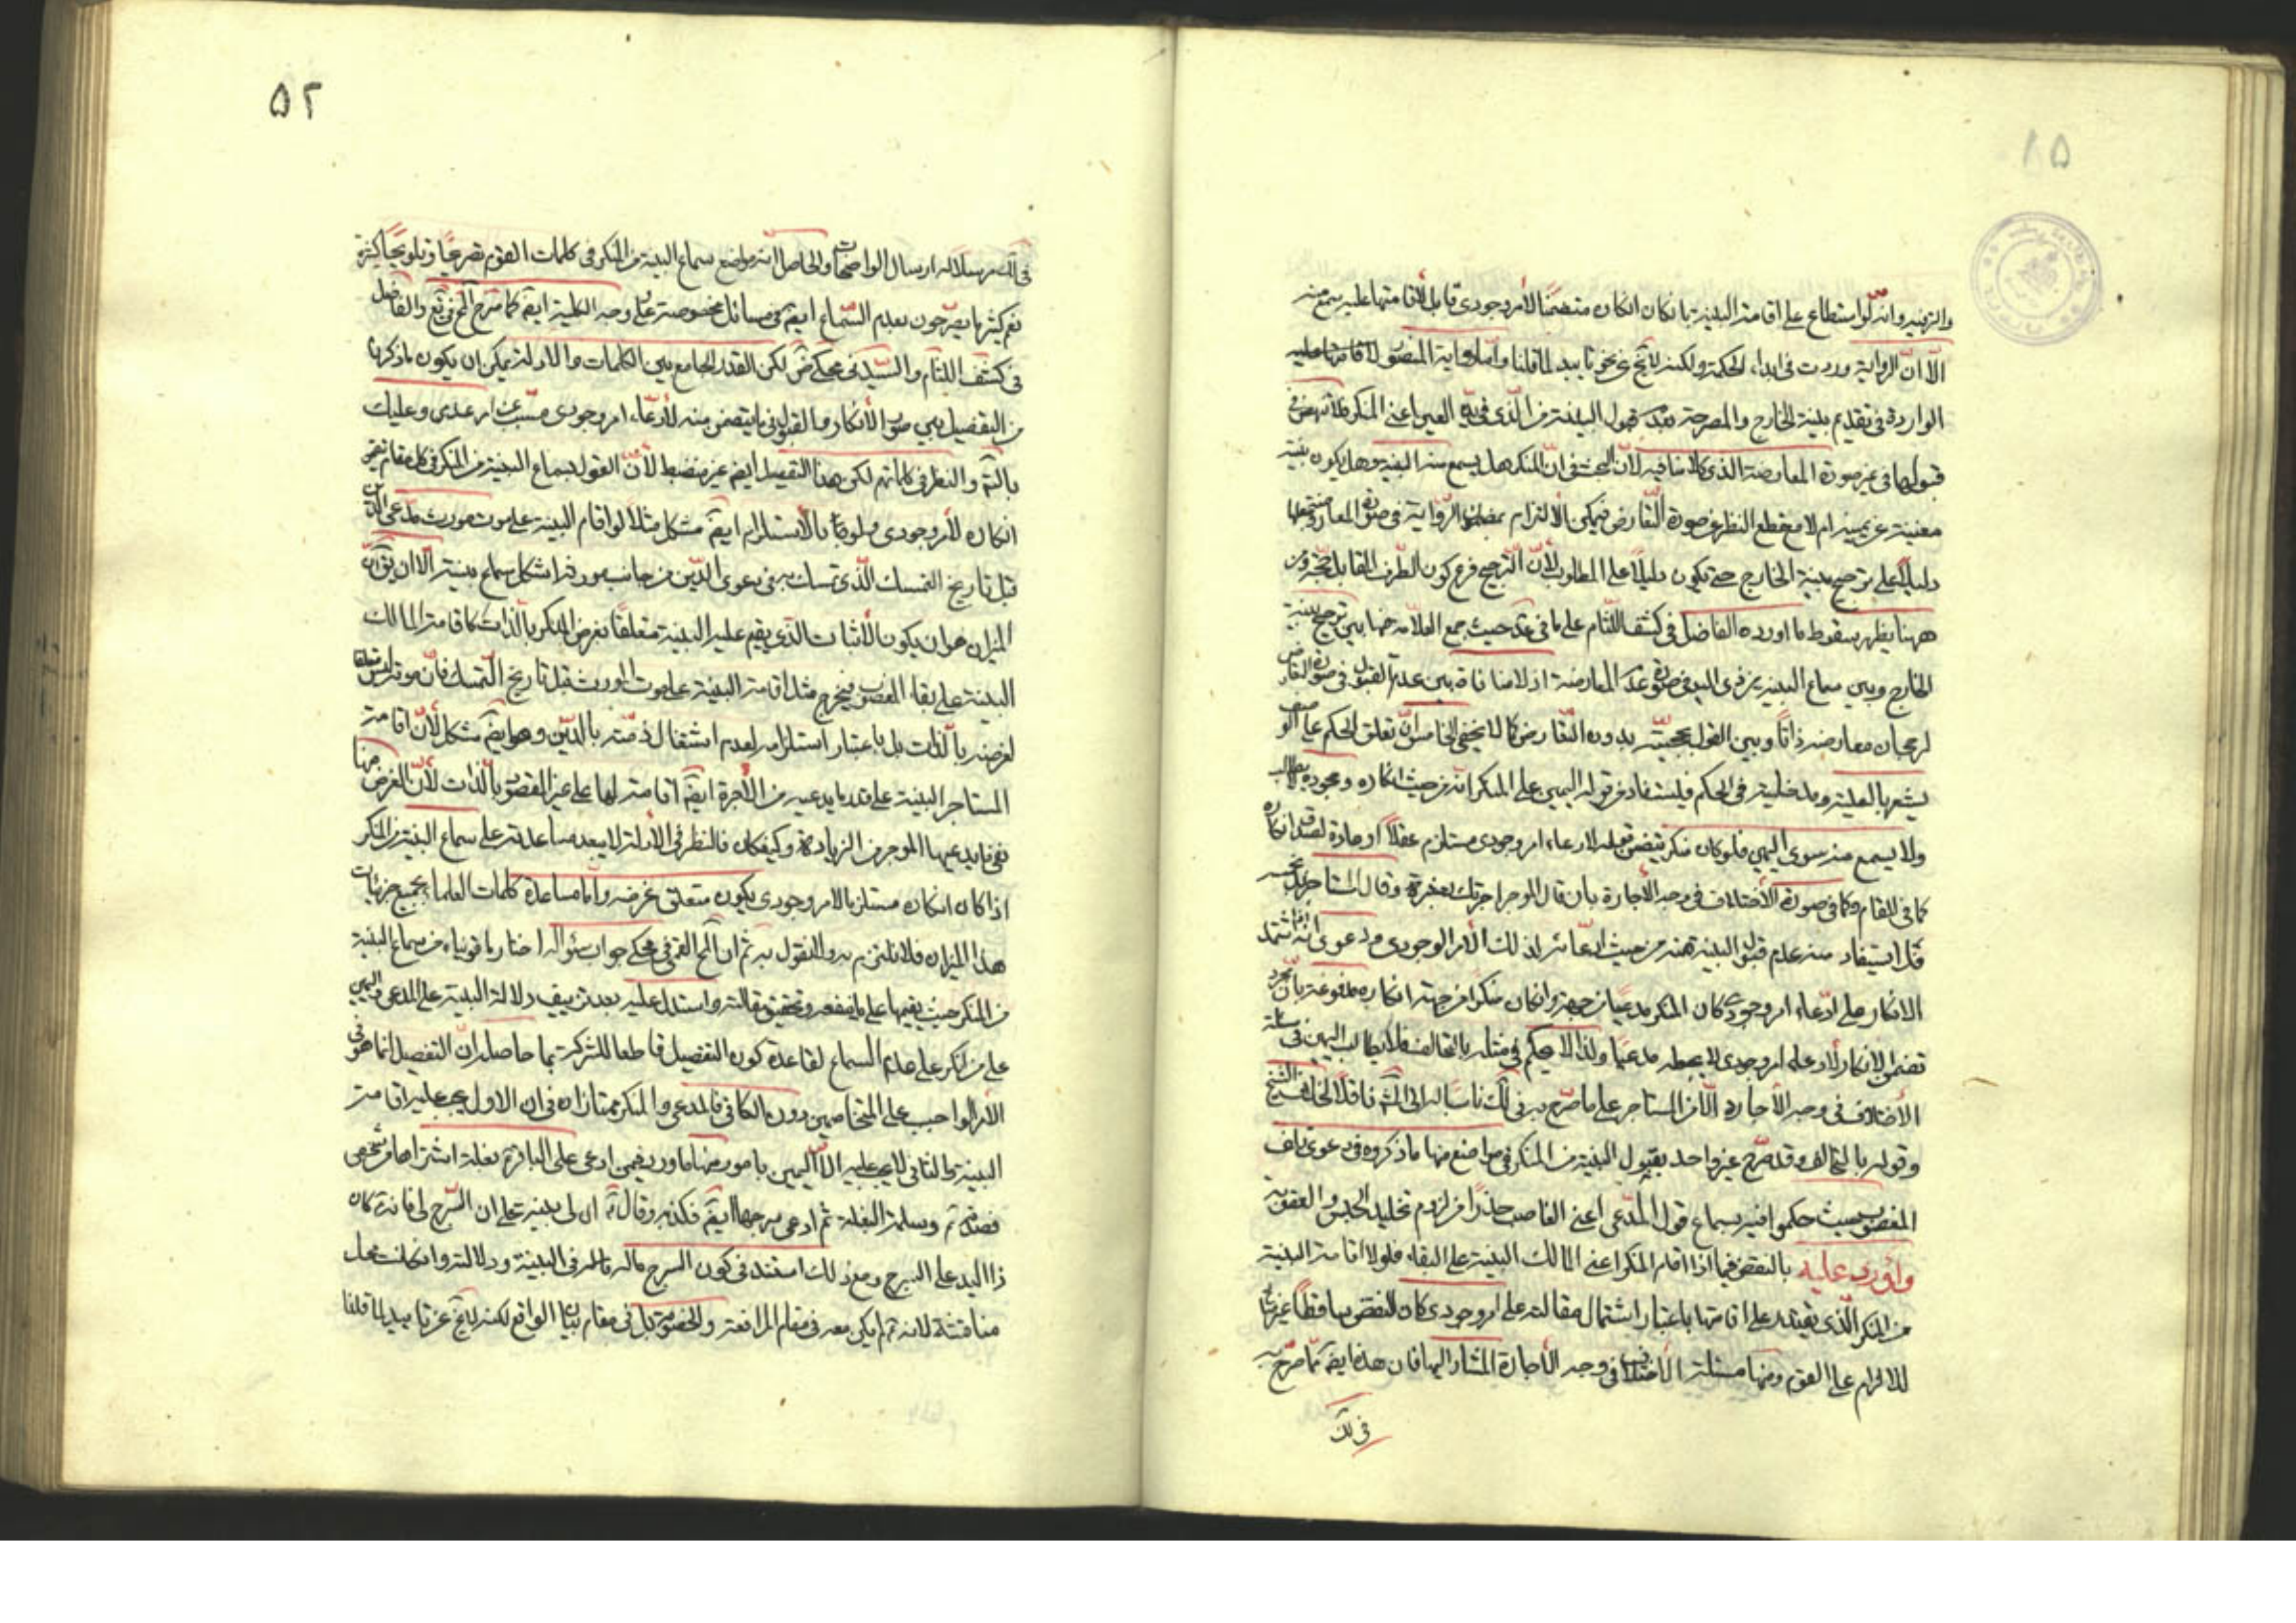 والزبيه وانه لو استطاع على اقامة البينة بان كان انكاره متضمنا لأمر وجودي قابل لأقامتها عليه يسمع منه
الا ان الرواية وردت في ابداء الحكمة ولكنه لا يخ عن نحو تاييد لما قلنا واما رواية المنصور
الواردة في تقديم بينة الخارج والمصرحة بعدم قبول البينة من الذي في يده العين اعني المنكر فلا تنهض في
قبولها في غير صورة المعارضة الذي كلامنا فيه لأن البحث في ان المنكر هل يسمع منه البينة وهل يكون بينته
مغنية عن يمينه ام لا مع قطع النظر عن صورة التعارض فيمكن الالتزام بمضمون الرواية في صورة المعارضة
دليلا على ترجيح بينة الخارج حتى يكون دليلا على المطلوب لأن الترجيح فرع كون الطرف القابل حجة ومن
ههنا يظهر سقوط ما اورده الفاضل في كشف اللثام على ما في عد حيث جمع العلامة فيها بين ترجيح بينة
الخارج وبين سماع البينة من ذي اليد في صورة عدم المعارضة اذ لا منافاة بين عدم القبول في صورة التعارض
لرجحان معارضه ذاتا وبين القول بحجيته بدون التعارض كما لا يخفى الخامس ان تعلق الحكم على الوصف
يشعر بالعلية ومدخليته في الحكم فيستفاد من قوله اليمين على المنكر انه من حيث انكاره وجحوده يطالب
ولا يسمع منه سوى اليمين فلو كان منكر يتضمن قوله لادعاء امر وجودي مستلزم عقلا او عادة لصدق انكاره
كما في المقام وكما في صورة الأختلاف في وجه الأجارة بان قال الموجر اجرتك بعشرة وقال المستاجر بل بخمسة
فلا يستفاد منه عدم قبول البينة منه من حيث ادعائه لذلك الأمر الوجودي ودعوى انه اذا اشتمل
الانكار على ادعاء امر وجودي كان المنكر مدعيا من جهة وان كان منكرا من جهة انكاره مدفوعة بان مجرد
تضمن الانكار لادعاء امر وجودي لا يجعله مدعيا ولذا لا يحكم في مثله بالتحالف فلا يطالب اليمين في مسئلة
الأختلاف في وجه الأجارة الا من المستاجر على ما صرح به في لك ناسبا له الى المش ناقلا لخلاف الشيخ
وقوله بالتحالف وقد صرح غير واحد بقبول البينة من المنكر في مواضع منها ما ذكروه في دعوى تلف
المغصوب حيث حكموا فيه بسماع قول المدعي اعني الغاصب حذرا من لزوم تخليد الحبس والعقوبة
واورد عليه بالنقض فيما اذا اقام المنكر اعني المالك البينة على البقاء فلولا اقامة البينة
من المنكر الذي يقتدر على اقامتها باعتبار اشتمال مقالته على امر وجودي كان النقض ساقطا غير
للالزام على القوم ومنها مسئلة الأختلاف في وجه الأجارة المشار اليها فان هذه ايضا مما صرح به
في لك
۵۲
في لك مرسلا له ارسال الواضحات والحاصل انه مواضع سماع البينة من المنكر في كلمات القوم تصريحا وتلويحا كثيرة
نعم كثيرا ما يصرحون بعدم السماع ايضا في مسائل مخصوصة على وجه الكلية ايضا كما صرح المحقق في يع والفاضل
في كشف اللثام والسيد في محكي ض لكن القدر الجامع بين الكلمات والادلة يمكن ان يكون ما ذكرنا
من التفصيل بين صور الأنكار والقبول فيما يتضمن منه لأدعاء امر وجودي مسبب عن امر عدمي وعليك
بالتتبع والنظر في كلماتهم لكن هذا التفصيل ايضا غير منضبط لأن القول بسماع البينة من المنكر في كل مقام يتضمن
انكاره لأمر وجودي ولو كان بالأستلزام ايضا مشكل مثلا لو اقام البينة على موت مورث مدعي الدين
قبل تاريخ التمسك الذي تمسك به في دعوى الدين من جانب مورثه اشكل سماع بينته الا ان يق ان
الميزان هو ان يكون الأثبات الذي يقيم عليه البينة متعلقا لغرض المنكر بالذات كاقامة المالك
البينة على بقاء المغصوب فيخرج مثل اقامة البينة على موت المورث قبل تاريخ التمسك فان موته ليس متعلقا
لغرضه بالذات بل باعتبار استلزامه لعدم اشتغال ذمته بالدين وهو ايضا مشكل لأن اقامة
المستاجر البينة على قدر ما يدعيه من الأجرة ايضا اقامة لها على غير المقصود بالذات لأن الغرض منها
نفي ما يدعيها الموجر من الزيادة وكيفكان فالنظر في الادلة لا يبعد مساعدته على سماع البينة من المنكر
اذا كان انكاره مستلزما لامر وجودي يكون متعلق غرضه واما مساعدة كلمات العلماء بجميع جزئيات
هذا الميزان فلا نلتزم به ولا نقول به ثم ان المحقق القمي في محكي جواب سئواله اختار ما قويناه من سماع البينة
من المنكر حيث يقيمها على ما ينفعه وتحقيق مقالته واستدل عليه بعد تزييف دلالة البينة على المدعي واليمين
على من انكر على عدم السماع لقاعدة كون التفصيل قاطعا للشركة بما حاصله ان التفصيل انما هو في
الأمر الواجب على المتخاصمين دون الكافي فالمدعي والمنكر يمتازان في ان الاول يجب عليه اقامة
البينة والثاني لا يجب عليه الا اليمين بامور منها ما ورد فيمن ادعى على الباقر ع بغلة اشتراها من شخص
فصدقه وسلمه البغلة ثم ادعى سرجها ايضا فكذبه وقال ع ان لي بينة على ان السرج لي فانه كان
ذا اليد على السرج ومع ذلك استند في كون السرج ماله الى البينة ودلالته وان كانت محل
مناقشة لانه ع لم يكن معه في مقام المرافعة والخصومة بل في مقام بيان الواقع لكنه لا يخ عن تاييد لما قلنا